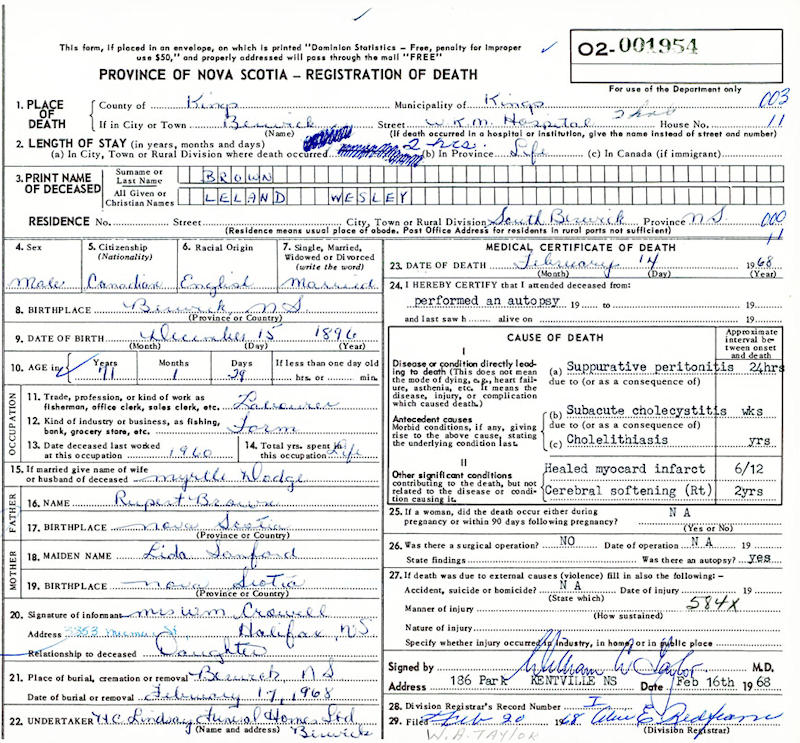 This form, if placed in an envelope, on which is printed "Dominion Statistics – Free, penalty for improper
use $50," and properly addressed will pass through the mail "FREE"
PROVINCE OF NOVA SCOTIA – REGISTRATION OF DEATH
O2-001954
For use of the Department only
1. PLACE OF DEATH
County of Kings Municipality of Kings 003
If in City or Town Berwick Street W.K.M. Hospital House No. 11
(Name) (If death occurred in a hospital or institution, give the name instead of street and number)
2. LENGTH OF STAY (in years, months and days)
(a) In City, Town or Rural Division where death occurred 2 hrs. (b) In Province Life (c) In Canada (if immigrant)
3. PRINT NAME OF DECEASED
Surname or Last Name BROWN
All Given or Christian Names LELAND WESLEY
RESIDENCE No. Street City, Town or Rural Division South Berwick Province N S 000
(Residence means usual place of abode. Post Office Address for residents in rural ports not sufficient) 11
4. Sex
Male
5. Citizenship (Nationality)
Canadian
6. Racial Origin
English
7. Single, Married, Widowed or Divorced (write the word)
Married
8. BIRTHPLACE Berwick NS
(Province or Country)
9. DATE OF BIRTH December 15 1896
(Month) (Day) (Year)
10. AGE in
Years Months Days If less than one day old
71 1 29 hrs. or min.
OCCUPATION
11. Trade, profession, or kind of work as
fisherman, office clerk, sales clerk, etc. Labourer
12. Kind of industry or business, as fishing,
bank, grocery store, etc. Farm
13. Date deceased last worked
at this occupation 1960
14. Total yrs. spent in
this occupation Life
15. If married give name of wife
or husband of deceased Myrtle Dodge
FATHER
16. NAME Rupert Brown
17. BIRTHPLACE Nova Scotia
(Province or Country)
MOTHER
18. MAIDEN NAME Lida Sanford
19. BIRTHPLACE Nova Scotia
(Province or Country)
20. Signature of informant Mrs Wm Crowell
Address 3353 St Halifax, NS
Relationship to deceased Daughter
21. Place of burial, cremation or removal Berwick, NS
Date of burial or removal February 17, 1968
22. UNDERTAKER H.C. Lindsay Funeral Homes Ltd
(Name and address) Berwick
MEDICAL CERTIFICATE OF DEATH
23. DATE OF DEATH February 14 1968
(Month) (Day) (Year)
24. I HEREBY CERTIFY that I attended deceased from:
performed an autopsy 19 to 19
and last saw h alive on 19
CAUSE OF DEATH
Approximate interval between onset and death
I
Disease or condition directly leading
to death (This does not mean
the mode of dying, e.g., heart failure,
asthenia, etc. It means the
disease, injury, or complication
which caused death.)
(a) Suppurative peritonitis 24hrs
due to (or as a consequence of)
Antecedent causes
Morbid conditions, if any, giving
rise to the above cause, stating
the underlying condition last.
(b) Subacute cholecystitis wks
due to (or as a consequence of)
(c) Cholelithiasis yrs
II
Other significant conditions
contributing to the death, but not
related to the disease or condition
causing it.
Healed myocard infarct 6/12
Cerebral softening (Rt) 2yrs
25. If a woman, did the death occur either during
pregnancy or within 90 days following pregnancy? N A
(Yes or No)
26. Was there a surgical operation? NO Date of operation N A 19
State findings Was there an autopsy? yes
27. If death was due to external causes (violence) fill in also the following:–
Accident, suicide or homicide? N A Date of injury 19
(State which)
Manner of injury 584X
(How sustained)
Nature of injury
Specify whether injury occurred in industry, in home or in public place
Signed by William A Taylor M.D.
Address 186 Park KENTVILLE NS Date Feb 16th 1968
28. Division Registrar's Record Number I
29. Filed Feb 20 1968
(Division Registrar)
W.A. TAYLOR